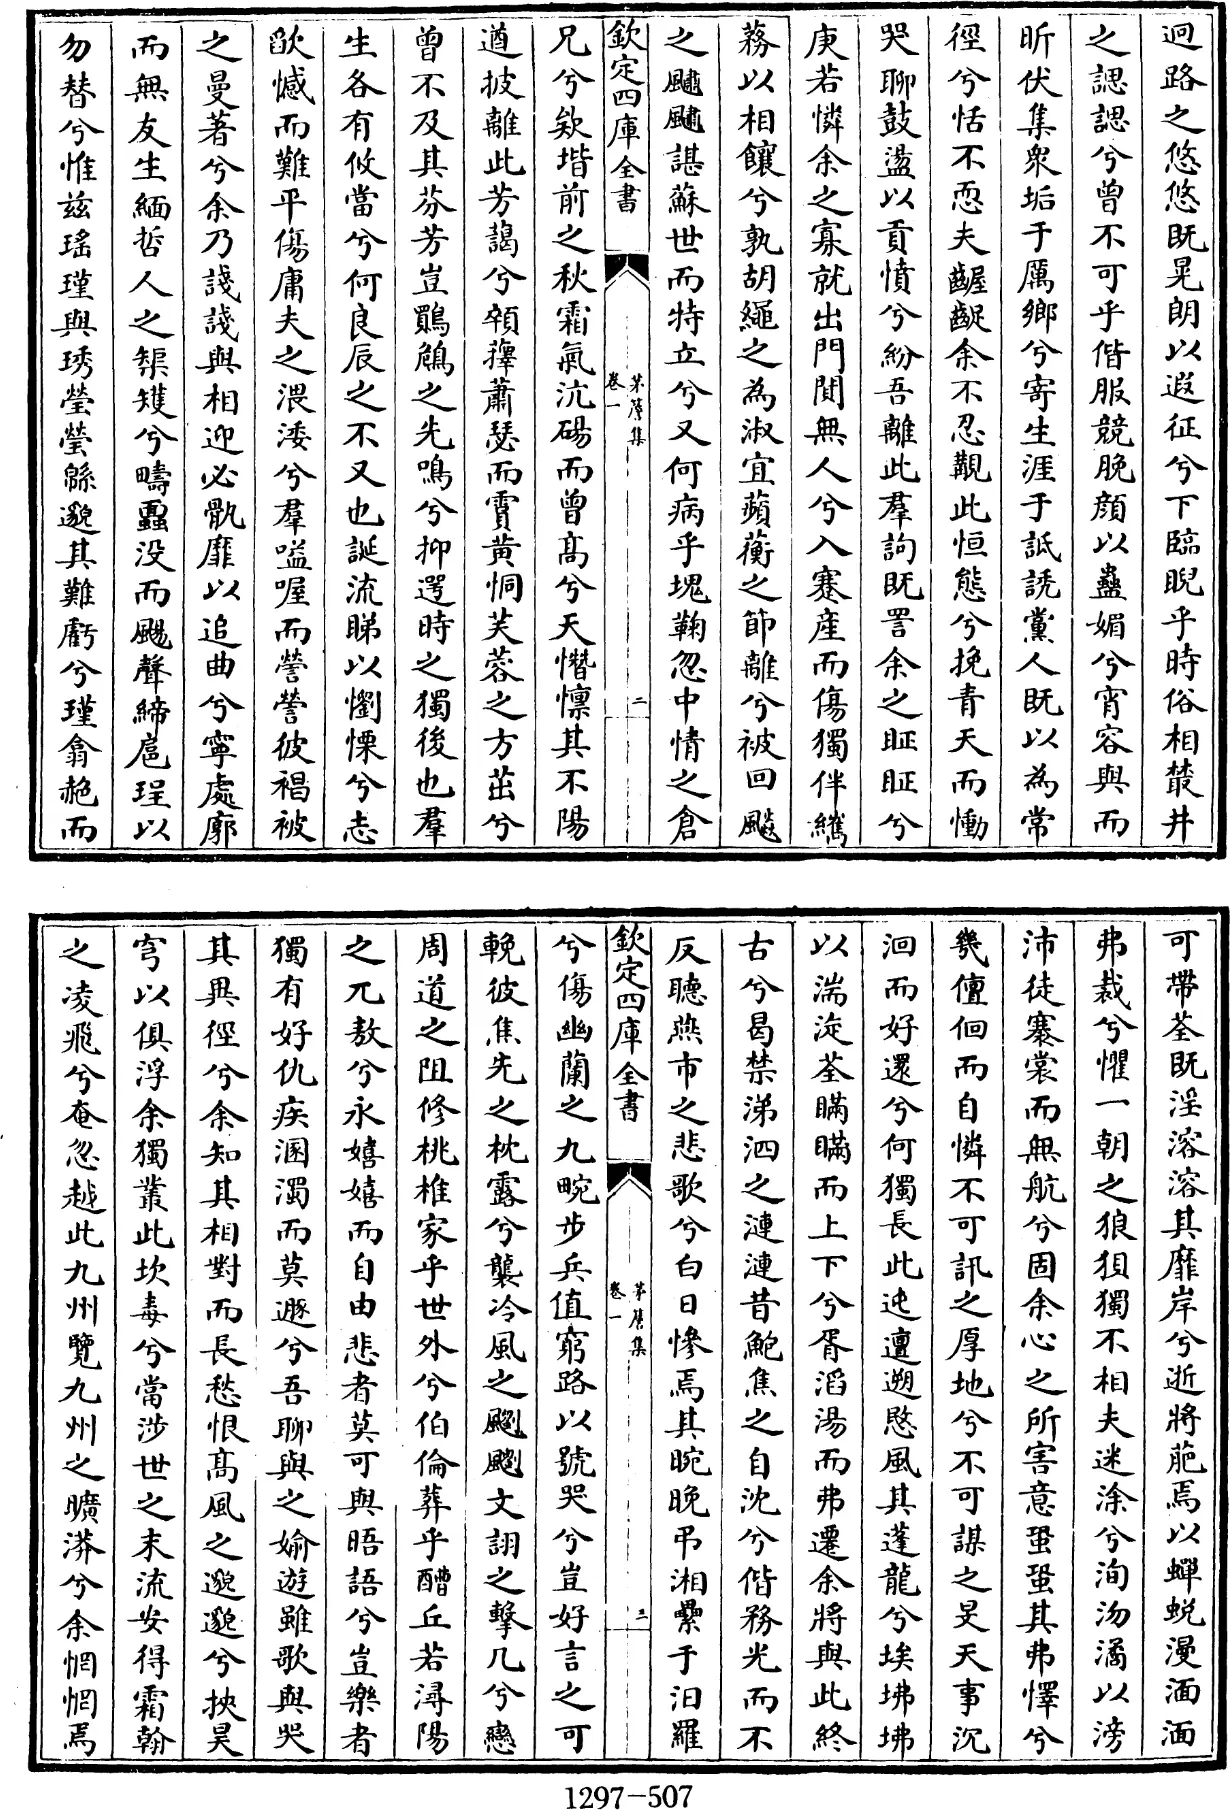 迥路之悠悠既晃朗以遐征兮下臨睨乎時俗相叢井
之諰諰兮曾不可乎偕服競脕顔以蠱媚兮宵容與而
昕伏集衆垢于厲鄉兮寄生涯于詆誘黨人既以為常
徑兮恬不恧夫齷齪余不忍覯此恒態兮挽青天而慟
哭聊鼓盪以貢憤兮紛吾離此羣訽既詈余之眐眐兮
庚若憐余之寡就出門閴無人兮入蹇産而傷獨伴
務以相饟兮孰胡繩之為淑宜蘋蘅之節離兮被回飈
之飀飀諶蘇世而特立兮又何病乎塊鞠忽中情之倉
欽定四庫全書
茅簷集
卷一
二
兄兮欸堦前之秋霜氣沆碭而曾高兮天憯懍其不陽
遒披離此芳藹兮顇蘀蕭瑟而霣黄恫芙蓉之方茁兮
曾不及其芬芳豈鶗鴂之先鳴兮抑遌時之獨後也羣
生各有攸當兮何良辰之不又也誕流睇以懰慄兮志
欿憾而難平傷庸夫之渨涹兮羣嗌喔而謍謍彼裮被
之曼著兮余乃諓諓與相迎必骩靡以追曲兮寧處廓
而無友生緬哲人之榘矱兮疇蠠没而颺聲締扈珵以
勿替兮惟兹瑤瑾與琇瑩瑩緜邈其難虧兮瑾翕赩而
可帶荃既淫溶溶其靡岸兮逝將葩焉以蟬蜕漫湎湎
弗裁兮懼一朝之狼狽獨不相夫迷涂兮洵汤潏以滂
沛徒褰裳而無航兮固余心之所害意蛩蛩其弗懌兮
幾儃佪而自憐不可訊之厚地兮不可謀之旻天事沉
洄而好還兮何獨長此迍邅遡愍風其蓬龍兮埃坲坲
以湍淀荃瞞瞞而上下兮胥滔湯而弗遷余將與此終
古兮曷禁涕泗之漣漣昔鮑焦之自沈兮偕務光而不
反聽燕市之悲歌兮白日慘焉其晼晚弔湘纍于汨羅
欽定四庫全書
茅簷集
卷一
三
兮傷幽蘭之九畹步兵值窮路以號哭兮豈好言之可
輓彼焦先之枕露兮襲冷風之飂飂文詡之擊几兮戀
周道之阻修桃椎家乎世外兮伯倫葬乎醩丘若潯陽
之兀敖兮永嬉嬉而自由悲者莫可與晤語兮豈樂者
獨有好仇疾溷濁而莫遯兮吾聊與之婾遊雖歌與哭
其異徑兮余知其相對而長愁恨高風之邈邈兮抰昊
穹以俱浮余獨叢此坎毒兮當涉世之末流安得霜翰
之凌飛兮奄忽越此九州覽九州之曠漭兮余惘惘焉
1297-507